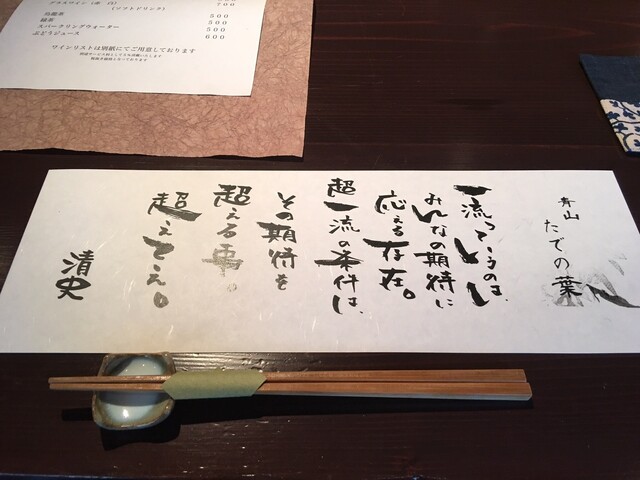 グラスワイン（赤 白） 700
（ソフトドリンク）
烏龍茶 500
緑茶 500
スパークリングウォーター 500
ぶどうジュース 600
ワインリストは別紙にてご用意しております
青山
たでの葉
一流っていうのは、
みんなの期待に
応える存在。
超一流の条件は、
その期待を
超える事。
超えてえ。
清史